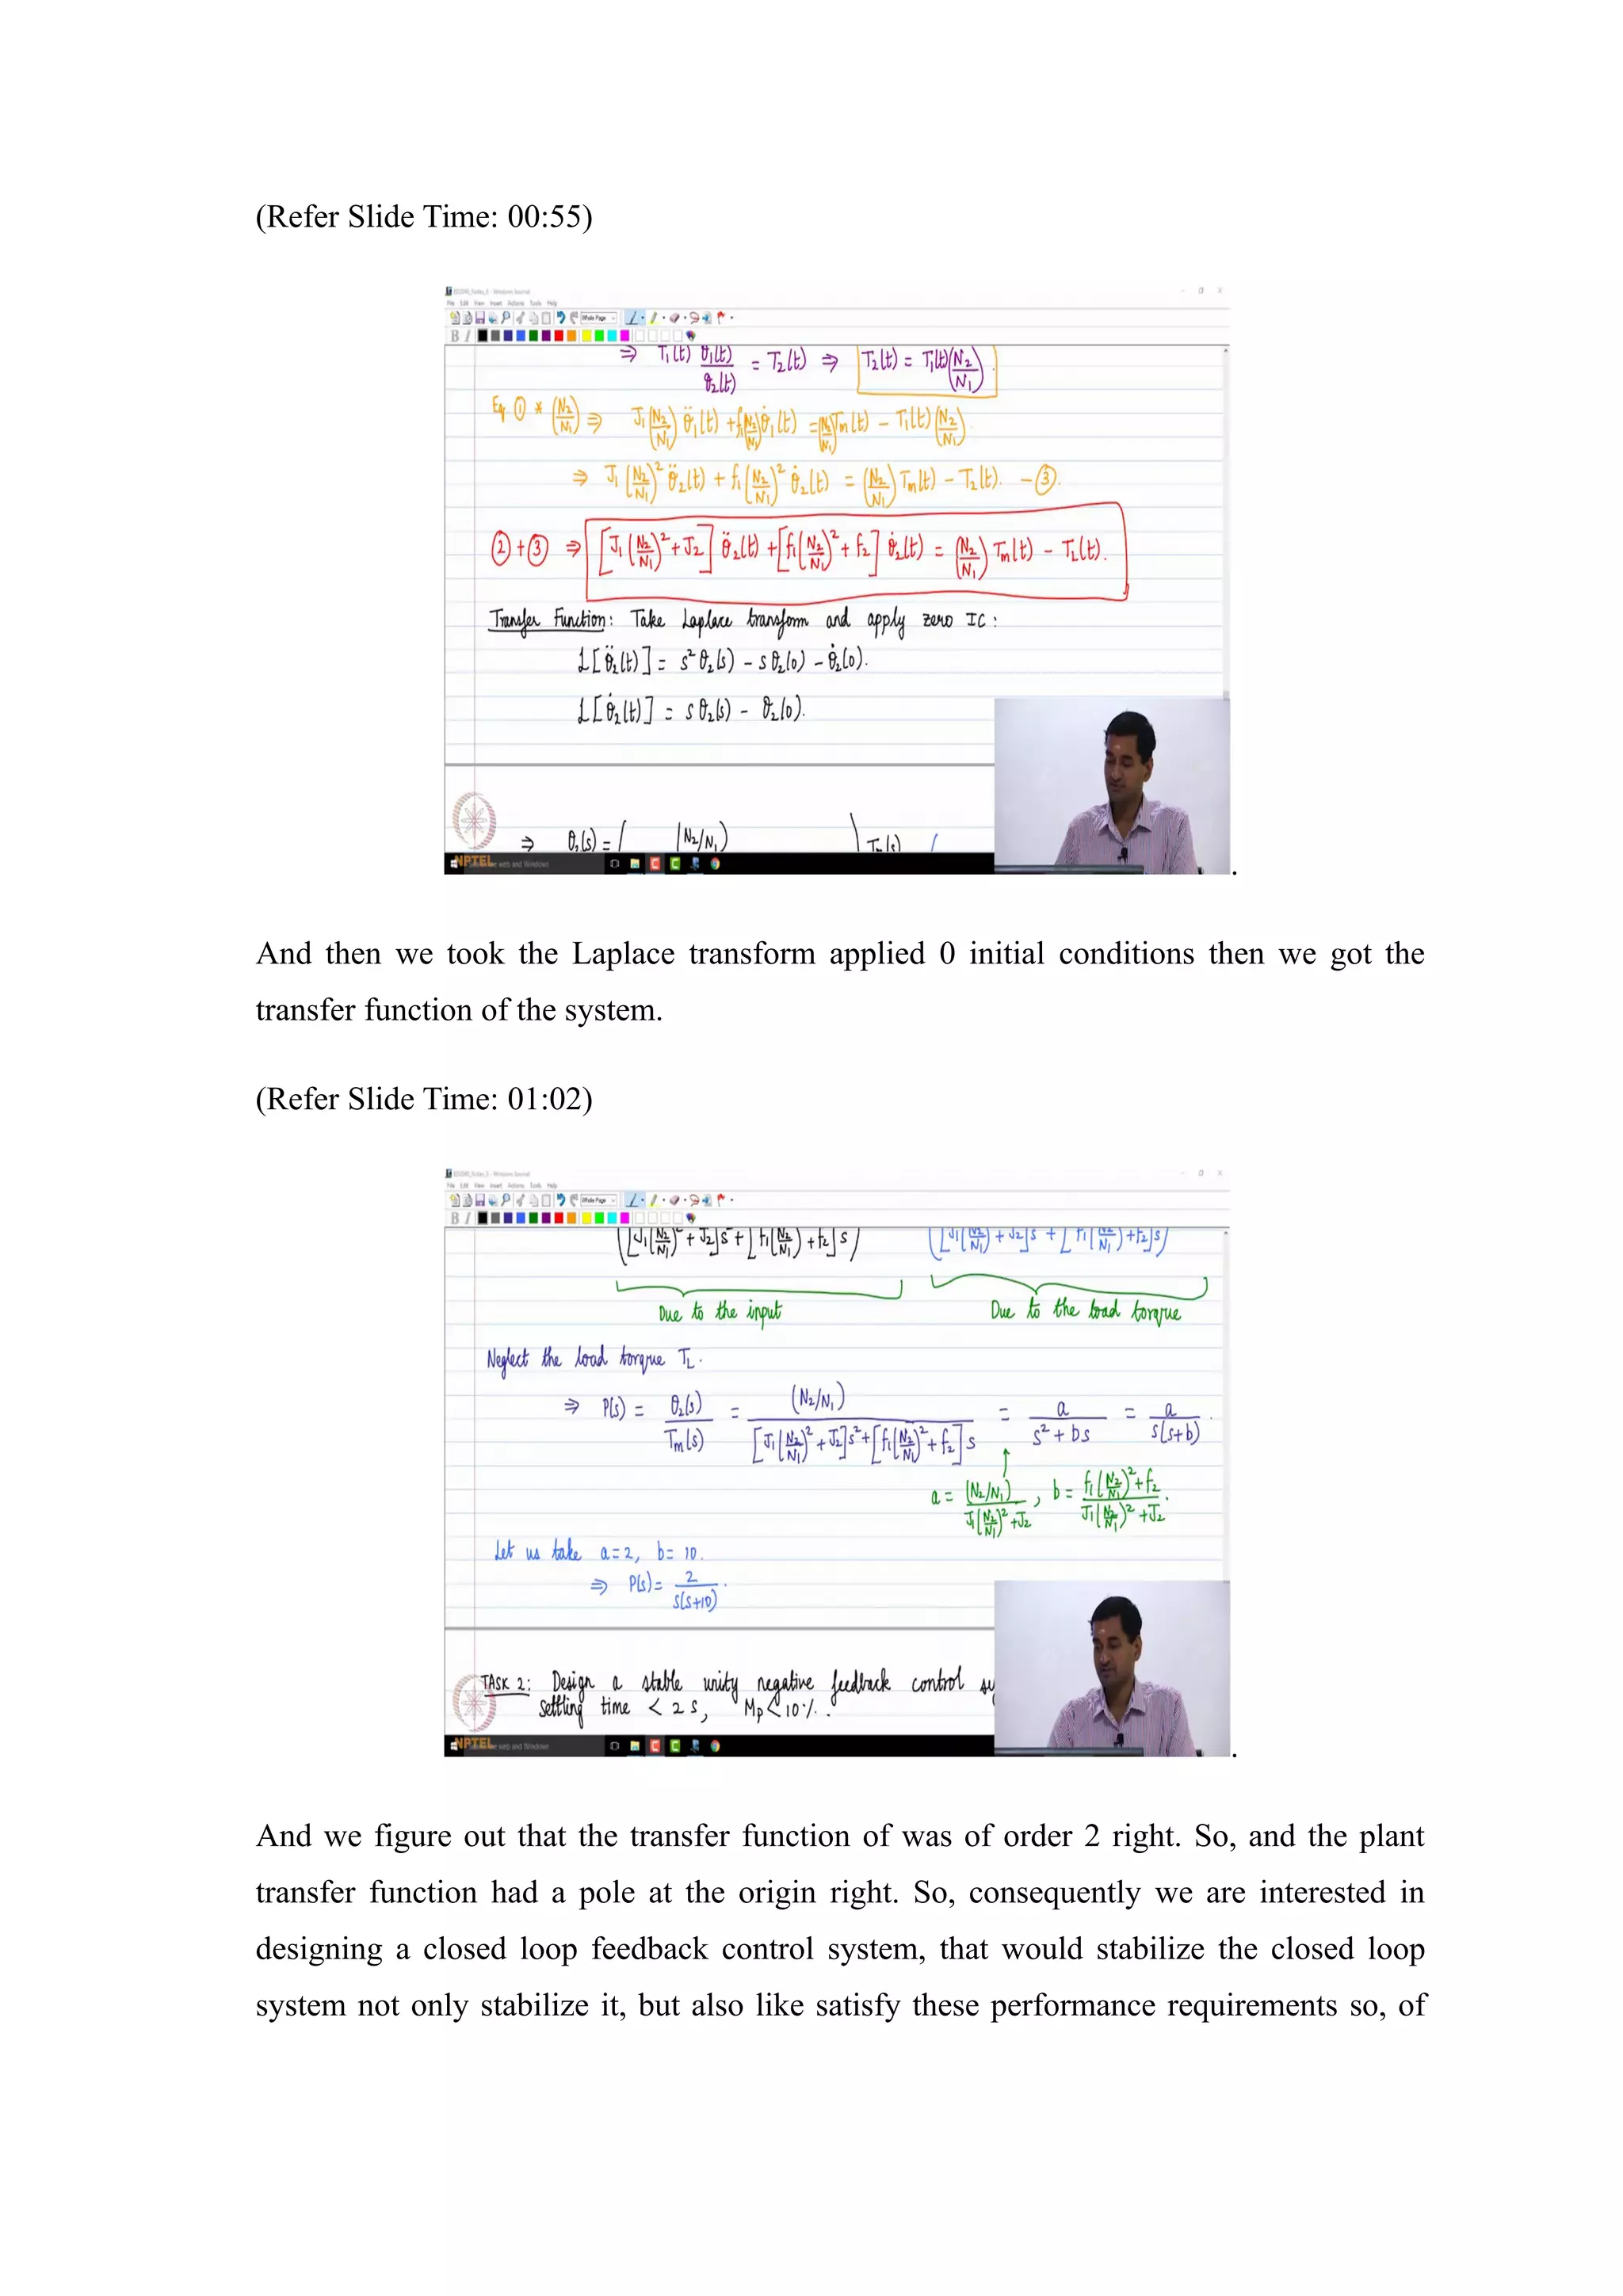 (Refer Slide Time: 00:55)
File Edit View Insert Actions Tools Help
Whole Page
B I
⇒ T₁(t) θ₁(t)/θ₂(t) = T₂(t) ⇒ T₂(t) = T₁(t)(N₂/N₁)
Eq ① * (N₂/N₁) ⇒ J₁(N₂/N₁) θ̈₁(t) + f₁(N₂/N₁) θ̇₁(t) = (N₂/N₁)Tm(t) – T₁(t)(N₂/N₁).
⇒ J₁(N₂/N₁)² θ̈₂(t) + f₁(N₂/N₁)² θ̇₂(t) = (N₂/N₁) Tm(t) – T₂(t). – ③.
②+③ ⇒ [J₁(N₂/N₁)² + J₂] θ̈₂(t) + [f₁(N₂/N₁)² + f₂] θ̇₂(t) = (N₂/N₁) Tm(t) – TL(t).
Transfer Function: Take Laplace transform and apply zero IC:
L[θ̈₂(t)] = s²θ₂(s) – sθ₂(0) – θ̇₂(0).
L[θ̇₂(t)] = sθ₂(s) – θ₂(0).
⇒ θ₂(s) = ( (N₂/N₁) ) Tm(s) (
NPTEL web and Windows
.
And then we took the Laplace transform applied 0 initial conditions then we got the
transfer function of the system.
(Refer Slide Time: 01:02)
File Edit View Insert Actions Tools Help
Whole Page
B I
([J₁(N₂/N₁)² + J₂]s² + [f₁(N₂/N₁)² + f₂]s) ([J₁(N₂/N₁)² + J₂]s² + [f₁(N₂/N₁)² + f₂]s)
Due to the input Due to the load torque
Neglect the load torque TL.
⇒ P(s) = θ₂(s)/Tm(s) = (N₂/N₁)/[J₁(N₂/N₁)² + J₂]s² + [f₁(N₂/N₁)² + f₂]s = a/s² + bs = a/s(s+b).
a = (N₂/N₁)/J₁(N₂/N₁)² + J₂, b = f₁(N₂/N₁)² + f₂/J₁(N₂/N₁)² + J₂.
Let us take a=2, b= 10.
⇒ P(s) = 2/s(s+10).
TASK 2: Design a stable unity negative feedback control sy
settling time < 2 s, Mp < 10%.
NPTEL web and Windows
.
And we figure out that the transfer function of was of order 2 right. So, and the plant
transfer function had a pole at the origin right. So, consequently we are interested in
designing a closed loop feedback control system, that would stabilize the closed loop
system not only stabilize it, but also like satisfy these performance requirements so, of